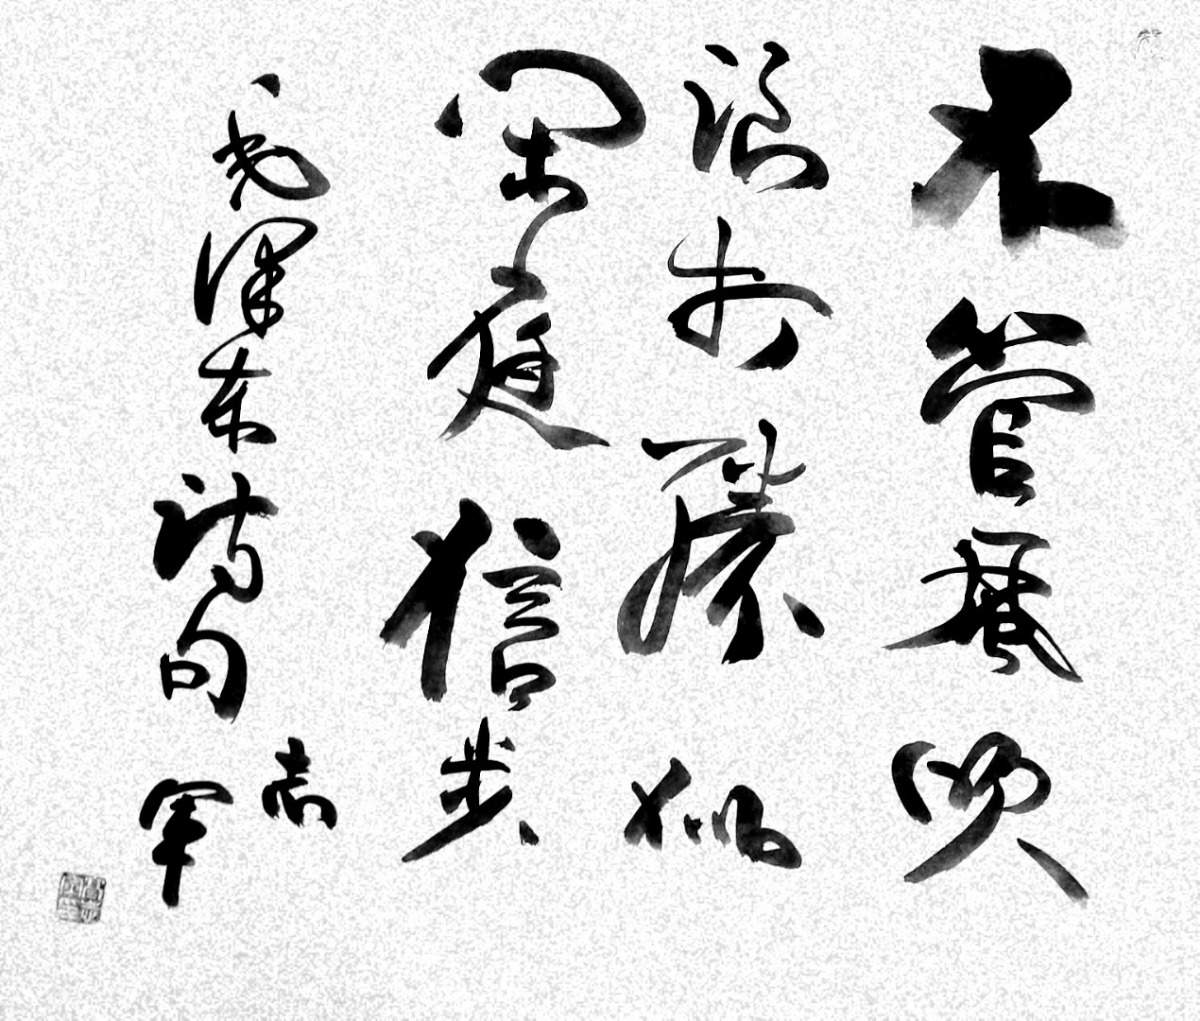 不管風吹
浪打勝似
閑庭信步
毛澤东詩句
志軍